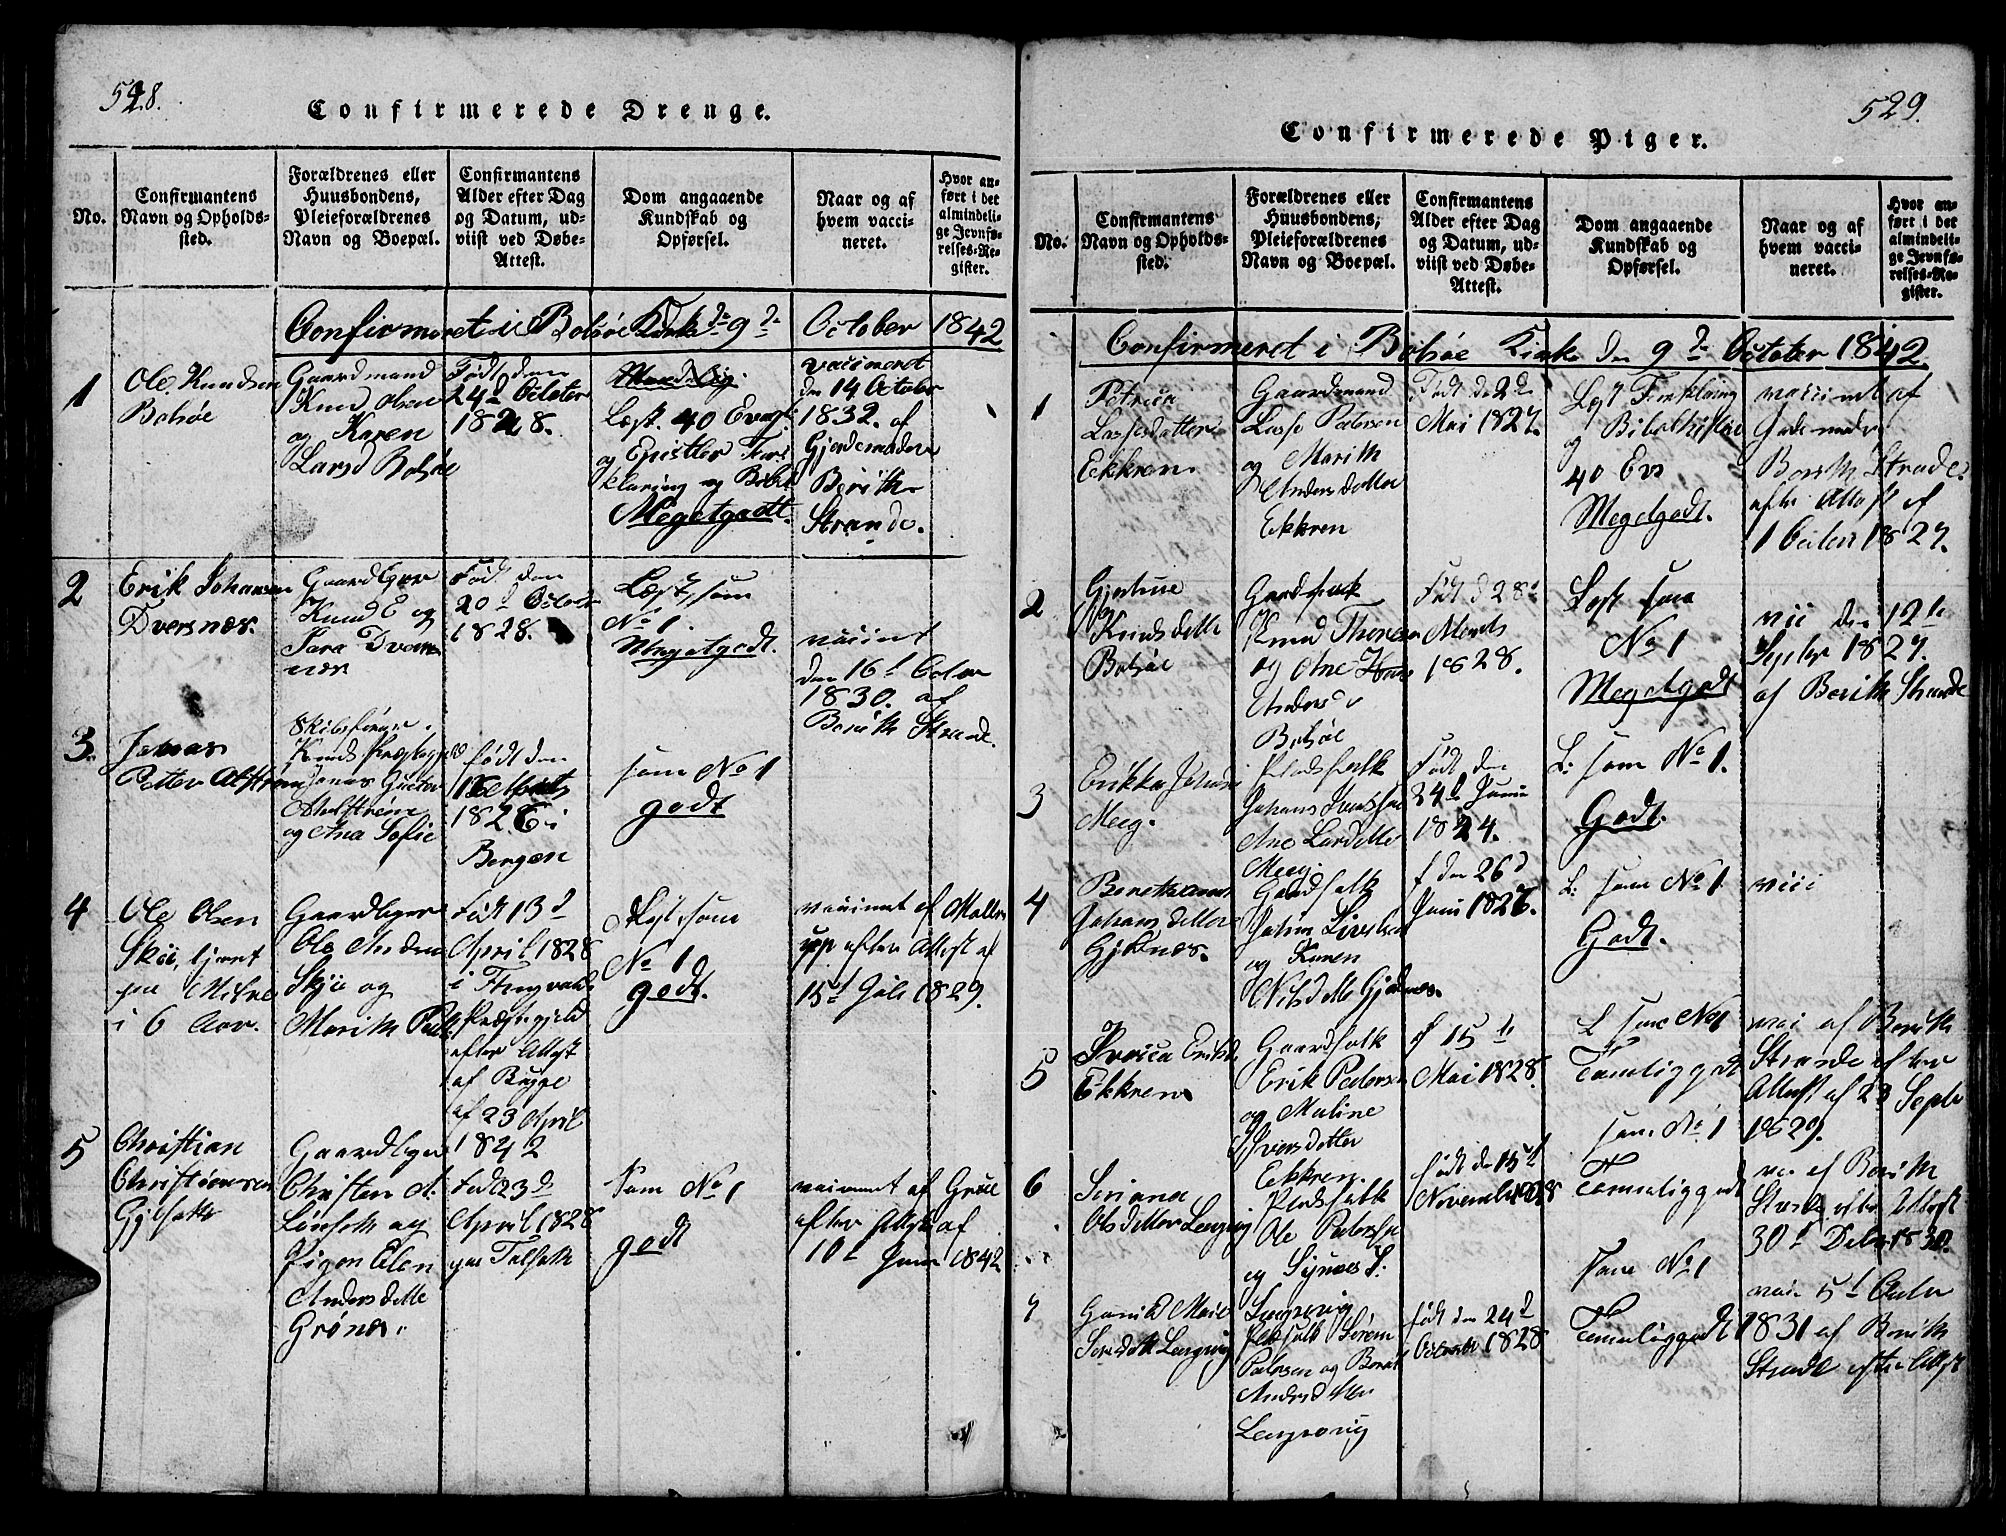 528.
Confirmerede Drenge.
No.
Confirmantens
Navn og Opholds-
sted.
Forældrenes eller
Huusbondens,
Pleieforældrenes
Navn og Boepæl.
Confirmantens
Alder efter Dag
og Datum, ud-
viist ved Døbe-
Attest.
Dom angaaende
Kundskab og
Opførsel.
Naar og af
hvem vacci-
neret.
Hvor an-
ført i det
almindeli-
ge Jevnfø-
relses-Re-
gister.
Confirmeret i Bolsøe Kirke d 9de October 1842
1
Ole Knudsen
Bolsøe
Gaardmand
Knud Olsen
og Karen
Larsd Bolsøe
Født den
24d October
1828.
Læst. 40 Evag:
og Epistler For
klaring og Bibel
Megetgodt.
vaccineret
den 14 October
1832. af
Gjordemoder
Berith
Strande.
2
Erik Johansen
Dversnæs.
Gaardbger
Knud E og
Sara Dvers
næs
Født den
20d October
1828.
Læst som
No 1.
Megetgodt.
vaccinet
den 16d Octbr
1830. af
Berith Strande.
3.
Jonas
Petter Alstrøm
Skibsfører
Jonas Gustav
Ahlstrøm
og Ana Sofie
født den
1828 i
Bergen
som No 1
godt
4
Ole Olsen
Skii, tjent
paa
i 6 Aar.
Gaardbger
Ole Anders
Skje og
Marith Peds
Født 13d
April 1828
i Tingvolds
Præstegjeld
efter Attest
af Bugge
af 23 April
1842
Læst som
No 1
godt.
vaccinet af Moller
up efter Attest af
15d Juli 1829.
5
Christian
Christiansen
Gaardbger
Christen A.
og
Pigen Elen
Andersdtte
Grønæs.
Født 23de
April 1828
Som No 1
godt
vaccinet af Grüe
efter Attest af
10d Juni 1842
529.
Confirmerede Piger.
No.
Confirmantens
Navn og Opholds-
sted.
Forældrenes eller
Huusbondens,
Pleieforældrenes
Navn og Boepæl.
Confirmantens
Alder efter Dag
og Datum, ud-
viist ved Døbe-
Attest.
Dom angaaende
Kundskab og
Opførsel.
Naar og af
hvem vacci-
neret.
Hvor an-
ført i det
almindeli-
ge Jevnfø-
relses-Re-
gister.
Confirmeret i Bolsøe Kirke den 9de October 1842.
1
Petrica
Lassesdatter
Eckren
Gaardmand
Lasse Pedersen
og Marith
Andersdatter
Eckren
Født d 2de
Mai 1827.
Lest Forklaring
og Bibelhistorie
40 Ev
Megetgodt.
vaccinet af
Berith Strande.
efter Attest af
1 Octbr 1827.
2
Gjertrue
Knudsdatter
Bolsøe
Gaardfolk
Knud Thorsen
og Ane
Andersd
Bolsøe
Født d 28d
Marts
1828.
Lest som
No 1
Megetgodt
vcci den 12te
Septbr 1827.
af Berith Strande
3
Erikka Johansd
Meeg.
Pladsfolk
Johans Knudsen
Ane Larsdatter
Meeg
Født den
24d Juni
1824.
L: som No 1.
Godt.
4
Johansdatter
Gjiknæs.
Gaardfolk
Johan Sivertsen
og Karen
Nilsdtte Gjiknæs.
f den 26d
Juni 1826.
L: som No 1
Godt.
vcci
5
Sverica Eriksd
Eckren
Gaardfolk
Erik Pedersen
og Maline
Sversdatter
Eckren.
f 15de
Mai 1828.
L som No 1
Temeliggodt
vcci af Berith
Strande efter
Attest af 23 Septbr
1829.
6
Seriana
Olsdatter Lengvig
Pladsfolk
Ole Pedersen
og Synnes S.
Lengvig
født den 15d
November 1828
som No 1
Temeliggodt
vcci af Berith
Strande efter Attest
30d Decbr 1830.
7
Gunild Marie
Lengvig
Pladsfolk Søren
Pedersen og Berith
Andersdatter
Lengvig
født den 24d
October 1828
som No 1
Temeliggodt
vacci 5d Octbr
1831 af Berith
Strande efter Attest